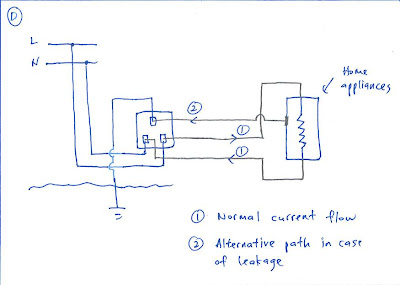 D
L
N
Home
appliances
②
①
①
① Normal current flow
② Alternative path in case
of leakage